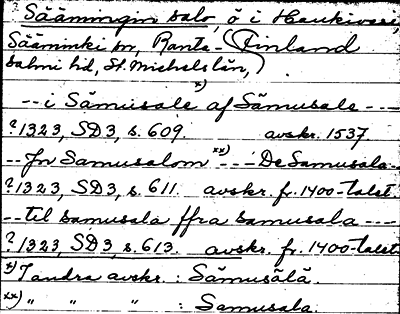 ? Säämingin salo, ö i Haukivesi,
Sääminki sn, Ranta- (Finland
salmi hd, St. Michels län,)
-- i Sämusale x) af Sämusale ----
? 1323, SD3, s. 609. avskr. 1537.
-- Jn Samusalom xx) --- De Samusala --
? 1323, SD3, s. 611. avskr. fr. 1400-talet.
-- til samusala ffra samusala ----
? 1323, SD3, s. 613. avskr. fr. 1400-talet.
x) Tandra avskr. : Sämusälä.
xx) " " " : Samusala.